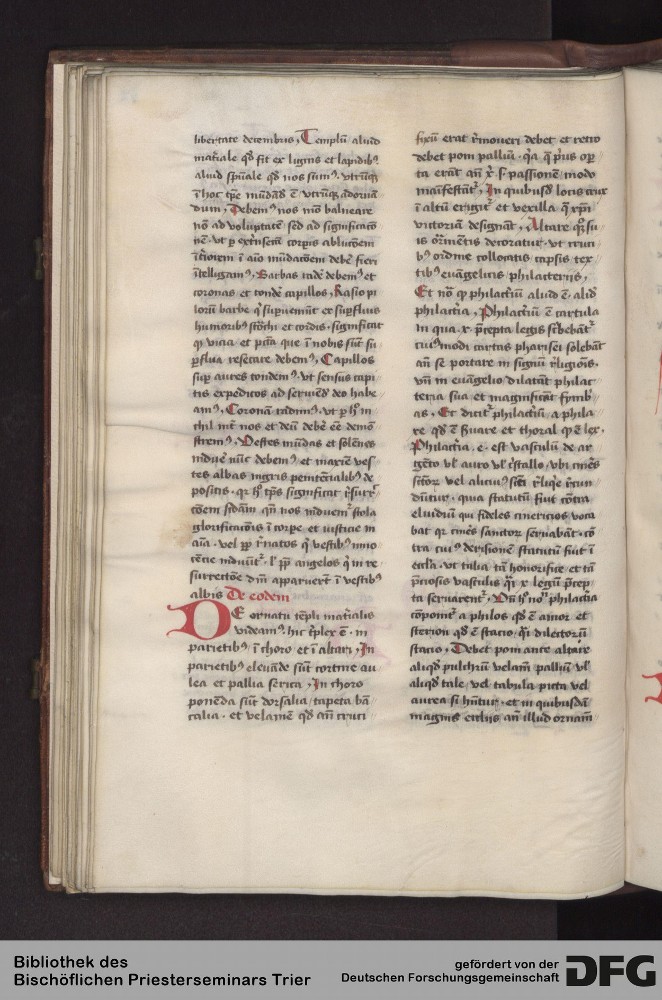 libertate decembris, Templū aliud
mat̄iale qd̄ fit ex lignis et lapidibꝰ
aliud spūale qd̄ nos sumꝰ. vtrūqꝫ
ī hoc tp̄e mūdād̄ ē vtrūqꝫ adornā
dum, Debemꝰ nos nō balneare
nō ad voluptatē sed ad significatō
nē. vt ꝑ ext̄nsecā corpis ablucōem
int̄iorem ī aīa mūdacōem debē fieri
ītelligamꝰ, Barbas rade debemꝰ et
coronas et tonde capillos, Rasio pi
lorū barbe q̄ suꝑueniūt ex suꝑfluis
humoribꝰ stōchi et cordis. significat
qꝫ vicia et pctā que ī nobis sūt su
ꝑflua resecare debemꝰ, Capillos
suꝑ aures tondemꝰ. vt sensus capi
tis expeditos ad serviēd deo habe
amꝰ, Coronā radimꝰ. vt ꝑ hꝰ ni
chil int̄ nos et deū debē ēē demō
stremꝰ, Vestes mūdas et solēnes
induē nūc debemꝰ et maxie ves
tes albas nigris penitēcialibꝰ de
positis. qꝛ hꝰ tp̄s significat r̄surr̄c
cōem sc̄dam qn̄ nos induemꝰ stola
glorificacōis ī corpe et iusticie in
aīa. vel pꝑ r̄natos q̄ vestibꝰ inno
cēcie induūtꝰ. l' pꝑ angelos q̄ in re
surrectōe dn̄i apparuer̄t ī vestibꝰ
albis De eodem
DE ornatu tēpli mat̄ialis
videamꝰ. hic t̄plex ē. in
parietibꝰ ī choro et ī altari, In
parietibꝰ elevāde sūt cortine au
lea et pallia serica, In choro
ponēda sūt dorsalia, tapeta bā
calia. et velamē qd̄ an̄ cruci
fixū erat r̄moueri debet et retro
debet poni palliū. qꝛa q̄ pⁱus opꝰ
ta erāt an̄ x. s. passionē modo
manifestātꝰ, In quibusd̄ locis crux
ī altū erigitꝰ et vexilla q̄ xp̄i
victoriā designāt, Altare qꝫ su
is or̄nētis decoratur. vt cruci
bꝰ ordine collocatis capsis tex
tibꝰ euāgelicis philacteriis,
Et nō qꝫ philact̄iū aliud ē. aliđ
philact̄ia, Philact̄iū ē cartula
in qua .x. p̄cepta legis sc̄bebātꝰ
cuiꝰmodi cartas pharisei solebāt
an̄ se portare in signū r̄ligiōis.
vn̄ in euāgelio dilatāt philac
teria sua et magnificāt fymbⁱ
as, Et dicitꝰ philact̄iū a phila
re qd̄ ē ſuare et thoral qꝫ ē lex.
Philact̄ia .e. est vasculū de ar
gēto vl' auro vl' c̄stallo, vbi cin̄es
sc̄tor̄ vel alicuiꝰ sc̄ti r̄liqe r̄cun
dūtur. quia statutū fuit cōtra
eluidiū qui fideles cinericios voca
bat qꝛ cin̄es sanctor̄ seruabāt. cō
tra cuiꝰ derisionē statutū fuit ī
eccl̄ia. vt talia tā honorifice et tā
p̄ciosis vasculis qꝫ x legū p̄cep
ta seruarentꝰ, Vn̄ hꝰ noꝰ philact̄ia
cōponitꝰ a philos qd̄ ē amor et
sterion qd̄ ē stacio. qⁱ dilectorū
stacio, Debet poni ante altare
aliqd̄ pulchrū velam̄ palliū vl'
aliqd̄ tale, vel tabula picta vel
aurea si hn̄tur. et in quibusdā
magnis ecclijs an̄ illud ornam̄
Bibliothek des
Bischöflichen Priesterseminars Trier
gefördert von der
Deutschen Forschungsgemeinschaft
DFG